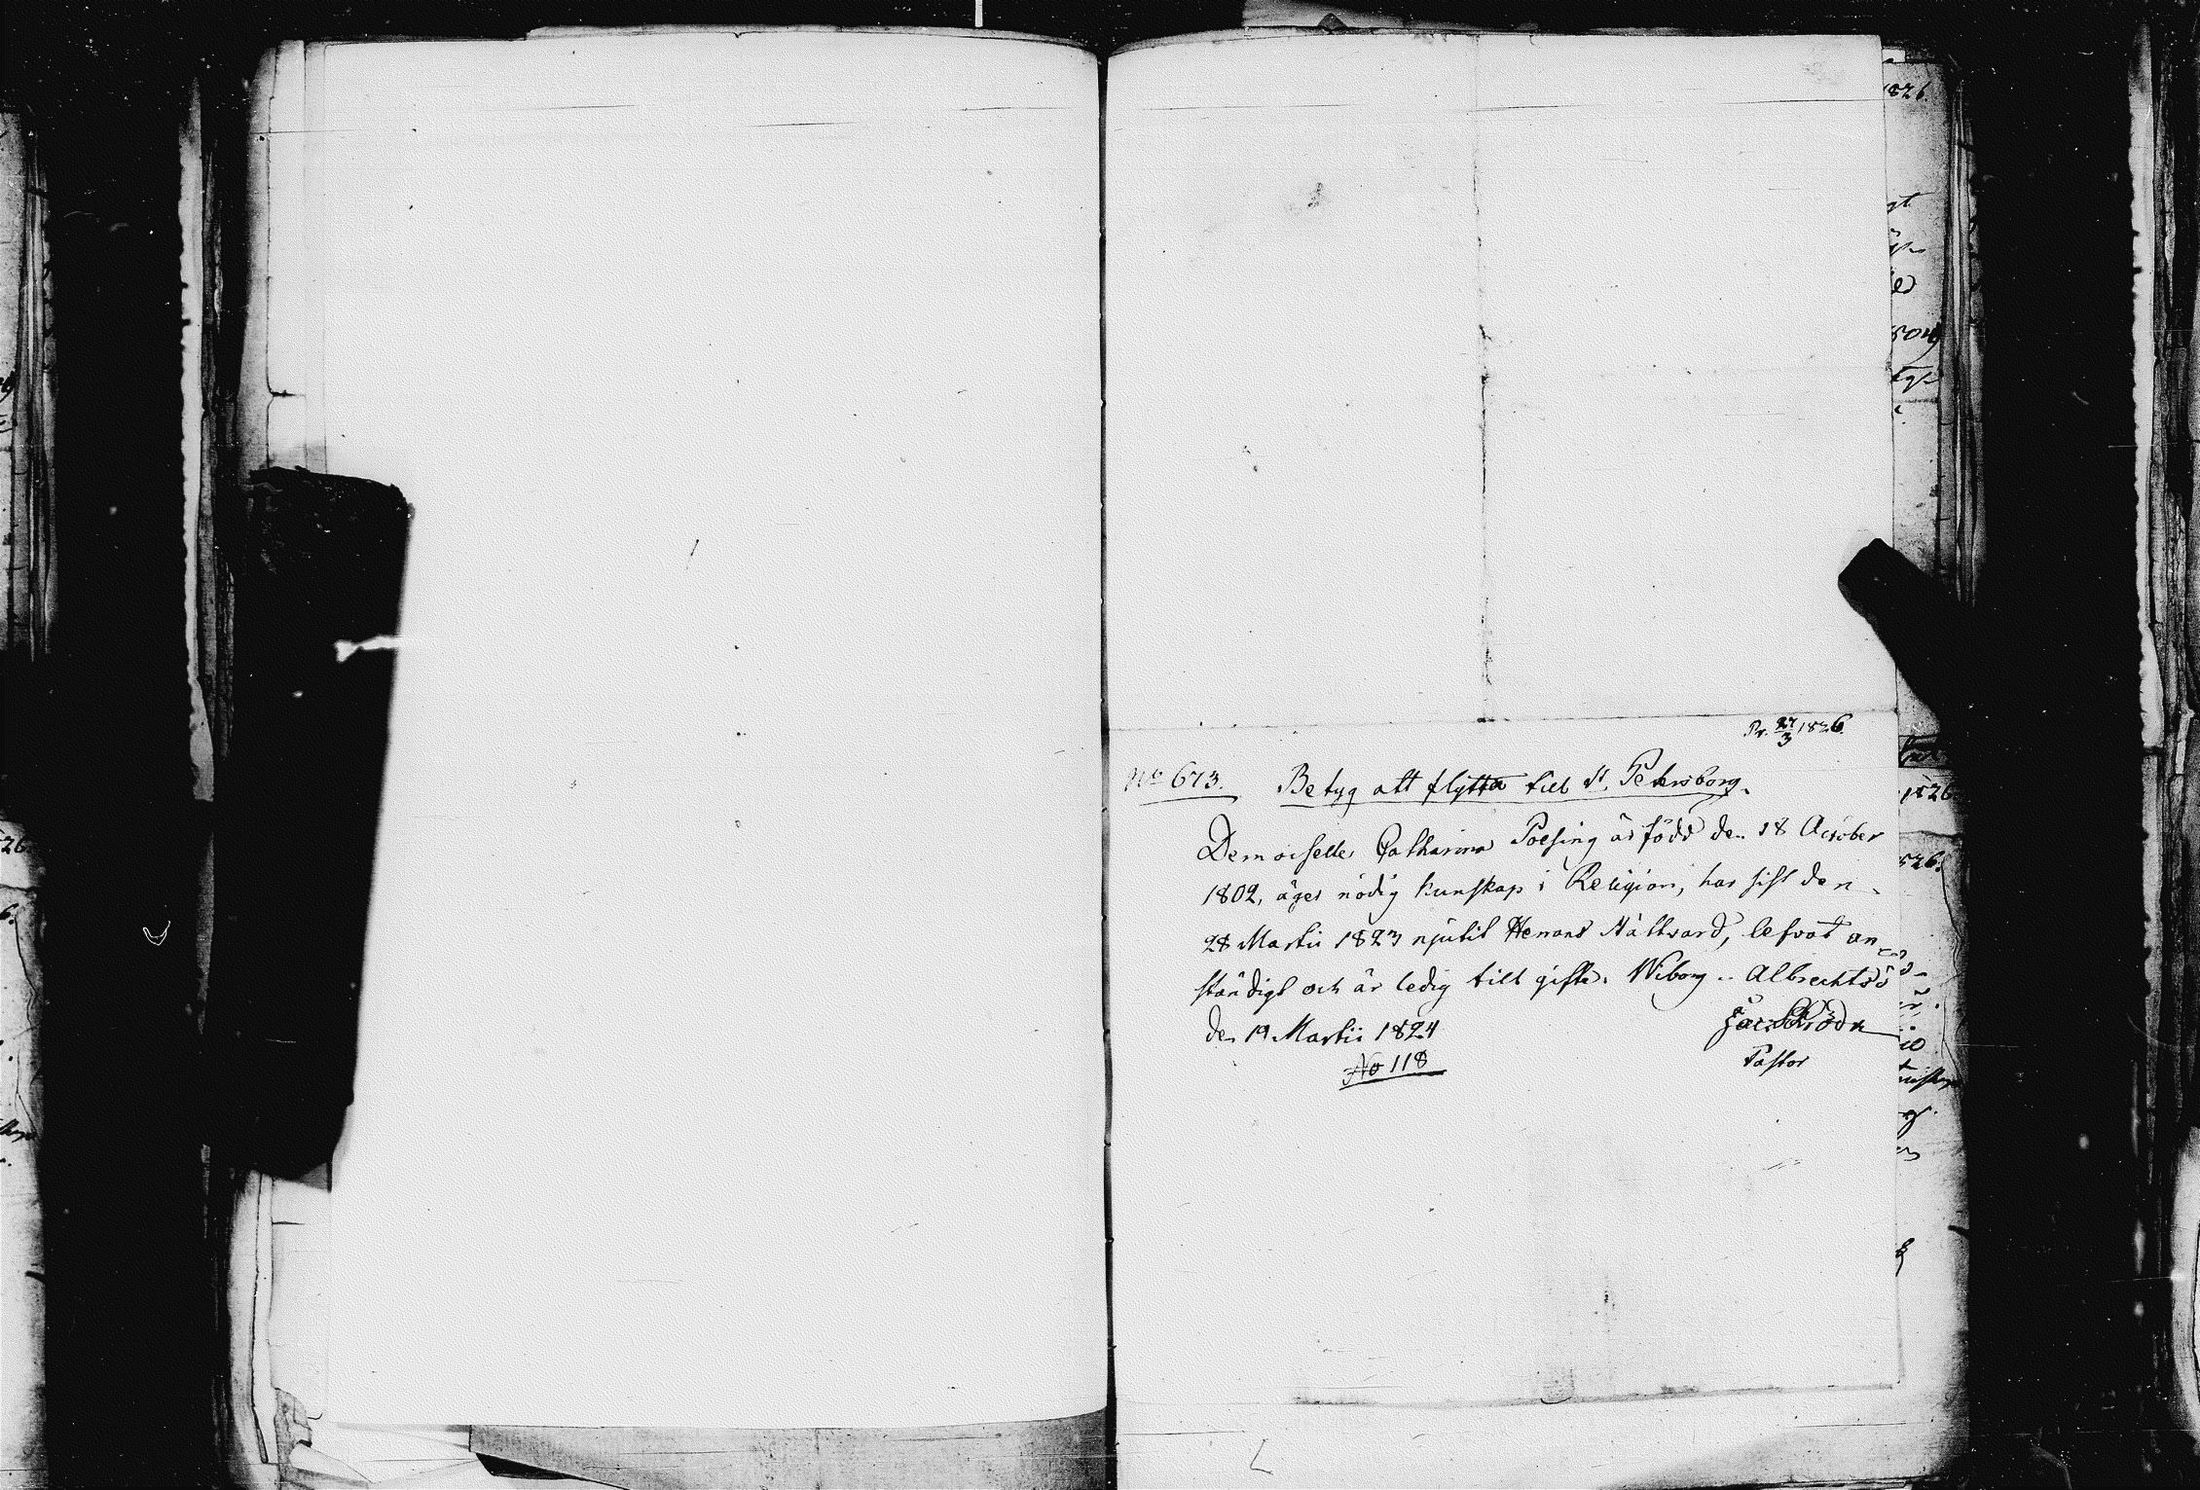 Pr. 27/3 1826
No 673. Betyg att flytta till St. Petersborg.
Demoiselle Catharina Poesing är född den 18 October
1802, äger nödig kunskap i Religion, har sist den
28 Martii 1823 njutit Herrans Nattvard, lefvat an-
ständigt och är ledig till gifte. Wiborg
den 19 Martii 1824
No 118
Pastor
1826.